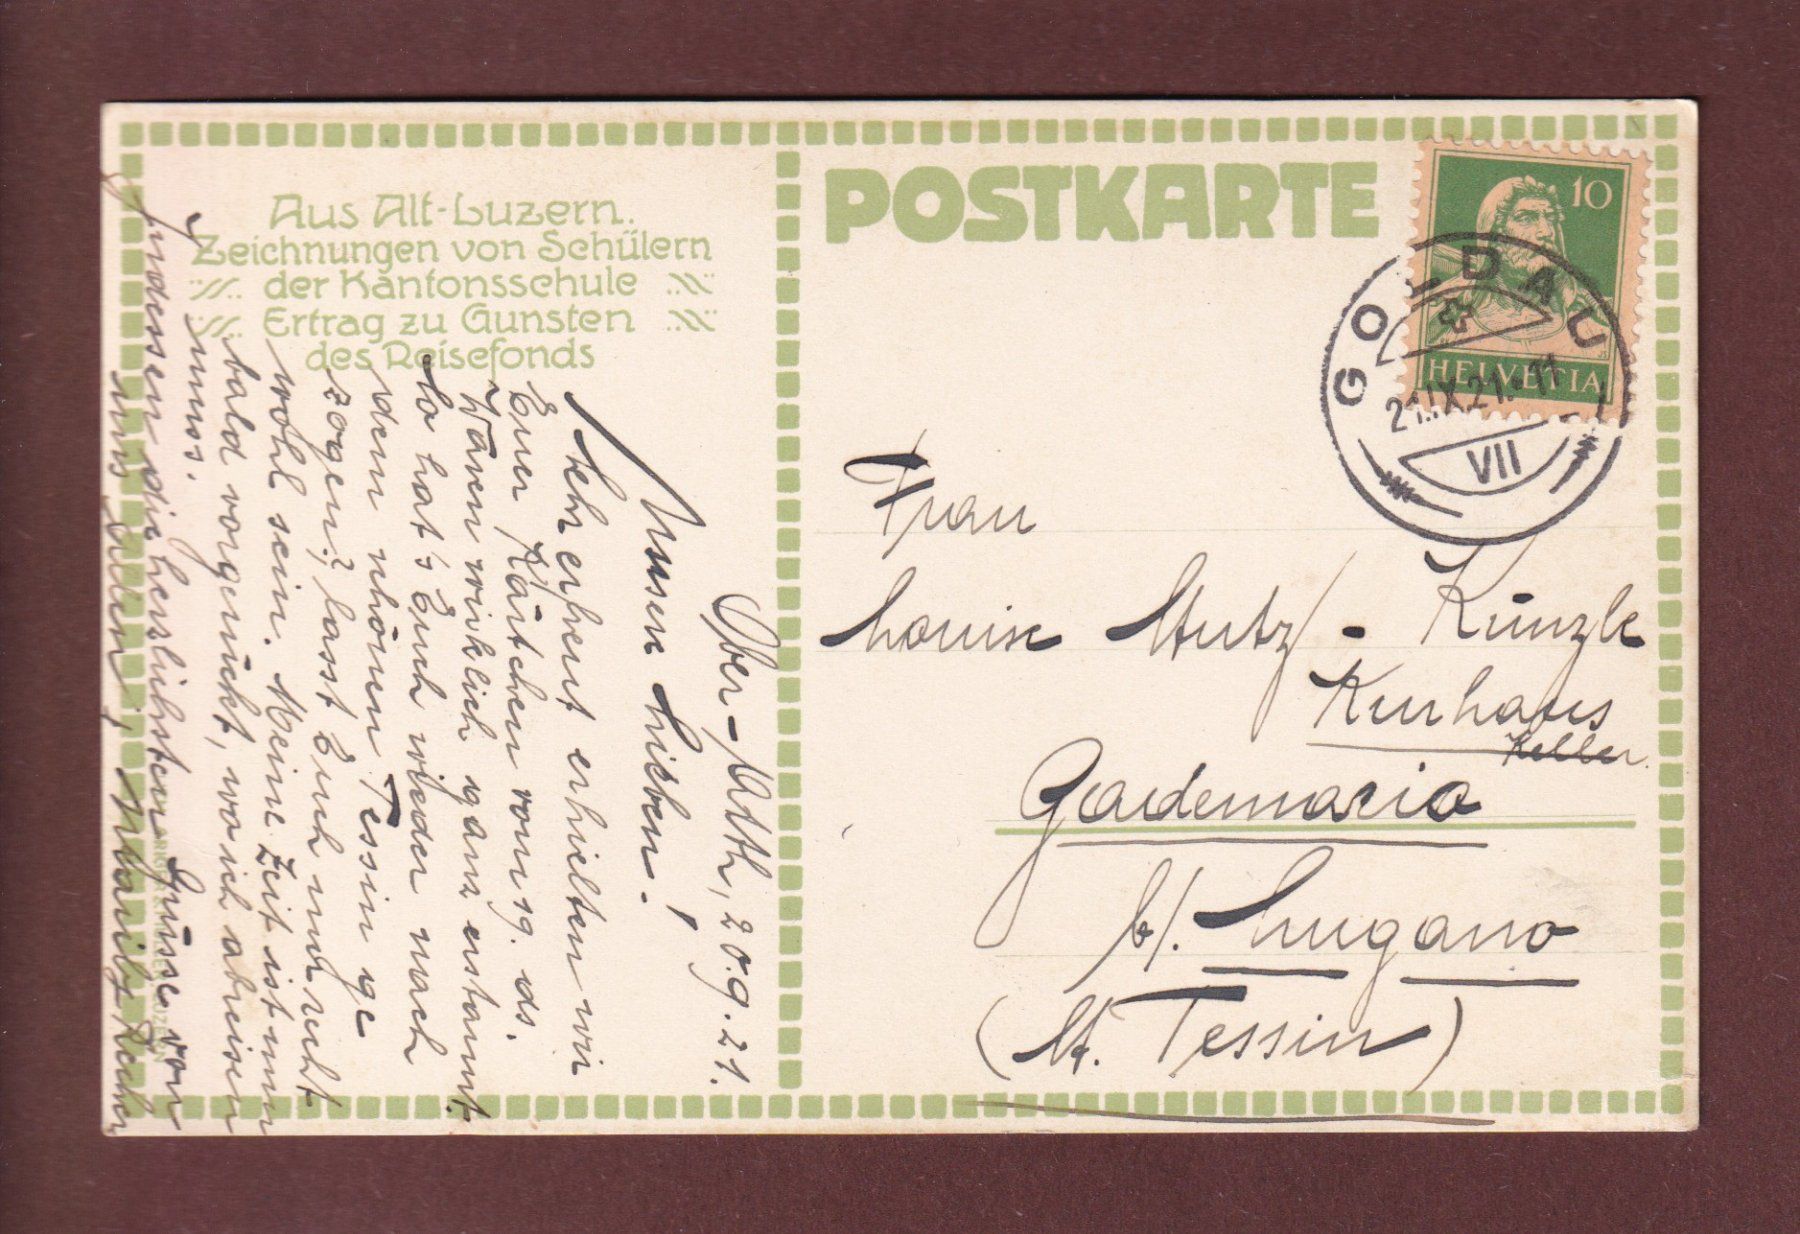 Aus Alt-Luzern.
Zeichnungen von Schülern
der Kantonsschule
Ertrag zu Gunsten
des Reisefonds
POSTKARTE
10
HELVETIA
GOLDAU
21.IX.21.-11
VII
Frau
Louise Stutz - Künzle
Kurhaus
Keller
b/. Lugano
(Kt. Tessin)
Ober-Arth, 20.9.21.
Unsere Lieben!
Sehr erfreut erhielten wir
Euer Kärtchen vom 19. ds.
Waren wirklich ganz erstaunt.
So hat's Euch wieder nach
dem schönen Tessin ge
zogen; lasst Euch nur recht
wohl sein. Meine Zeit ist nun
bald vorgerückt, wo ich abreisen
muss.
Indessen die herzlichsten Grüsse von
uns allen,
LUZERN